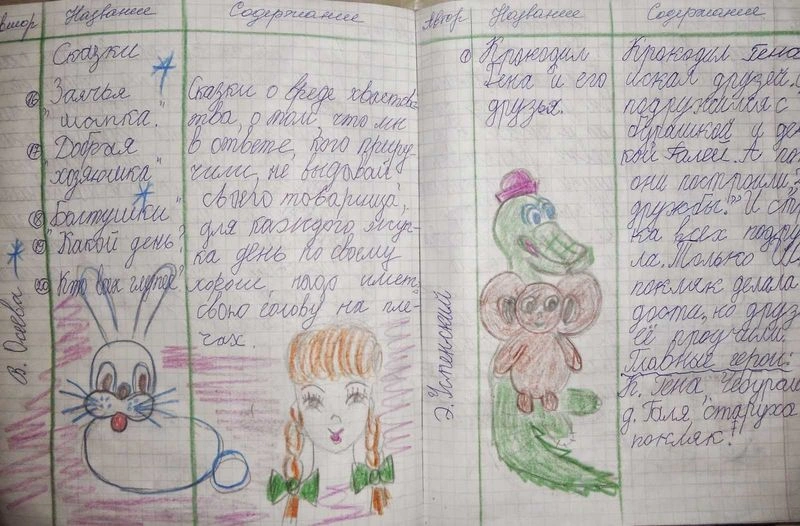 Автор Название Содержание
Сказки
16 Заячья
"шапка."
17 "Добрая
хозяюшка"
18 "Болтушки"
19 "Какой день?"
20 Кто всех глупее?
В. Осеева
Сказки о вреде хвастовс-
тва, о том, что мы
в ответе, кого приру-
чили, не выдавай
своего товарища,
для каждого жуч-
ка день по своему
хорош, надо иметь
свою голову на пле-
чах.
Автор Название Содержание
Э. Успенский
1 Крокодил
Гена и его
друзья.
Крокодил Гена
искал друзей.
подружился с
бурашкой и
кой Галей. А
они построили
дружбы." И
ка всех подру
ла. Только
покляк делала
дости, но друз
её проучили.
Главные герои:
К. Гена, Чебураш
д. Галя, старуха
покляк!